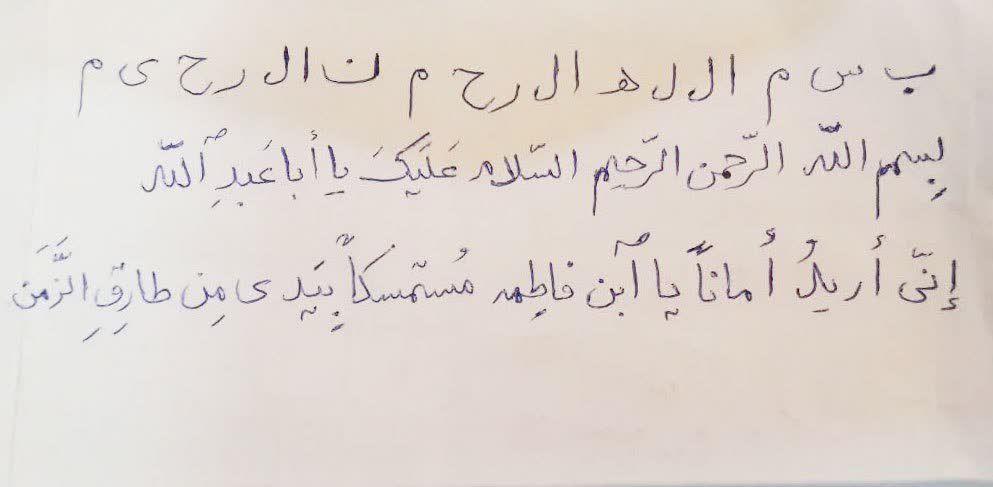 ب س م ا ل ل ه ا ل ر ح م ن ا ل ر ح ی م
بِسمِ اللّه الرّحمن الرّحیم السّلام عَلَیکَ یا أبا عَبدِ ٱللّه
إنّی أریدُ أُماناً یا ٱبن فاطِمه مُستمسکاً بِیَدی مِن طارِقِ الزَّمَنِ